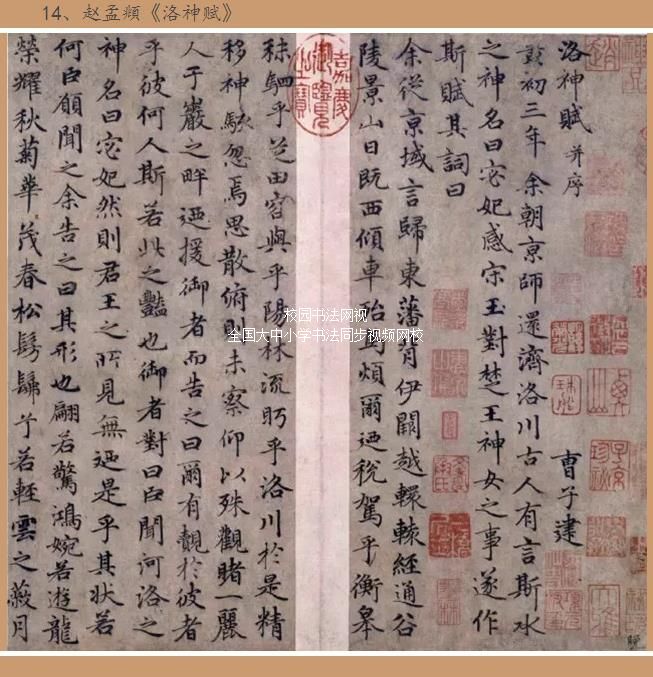 14、赵孟頫《洛神赋》
洛神賦 并序 曹子建
黃初三年余朝京師還濟洛川古人有言斯水
之神名曰宓妃感宋玉對楚王神女之事遂作
斯賦其詞曰
余從京域言歸東藩背伊闕越轘轅經通谷
陵景山日既西傾車殆馬煩爾迺稅駕乎衡皋
秣駟乎芝田容與乎陽林流眄乎洛川於是精
移神駭忽焉思散俯則未察仰以殊觀睹一麗
人于巖之畔迺援御者而告之曰爾有覿於彼者
乎彼何人斯若此之豔也御者對曰臣聞河洛之
神名曰宓妃然則君王之所見無迺是乎其狀若
何臣願聞之余告之曰其形也翩若驚鴻婉若遊龍
榮耀秋菊華茂春松髣髴兮若輕雲之蔽月
嘉慶御覽之寶
校园书法网视
全国大中小学书法同步视频网校